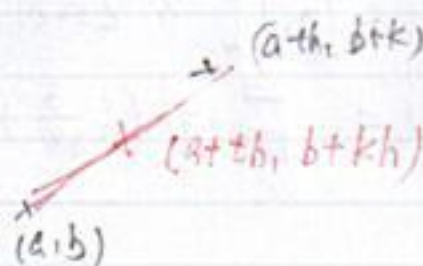 (a+h, b+k)
(a+th, b+kh)
(a,b)